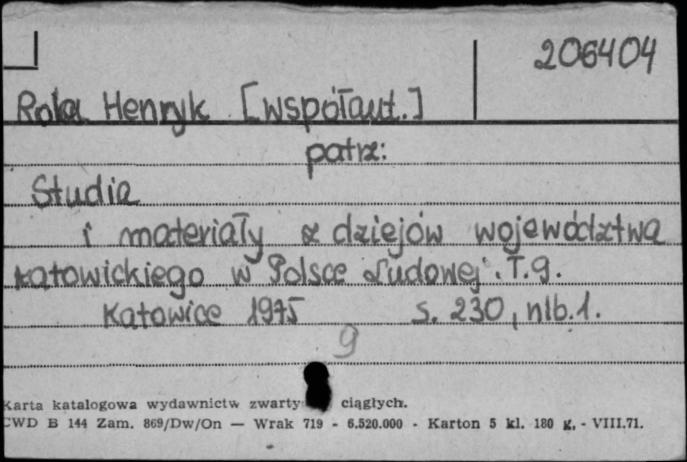 206404
Rola Henryk [współaut.]
patrz:
Studia
i materiały z dziejów województwa
katowickiego w Polsce Ludowej. T.9.
Katowice 1975 s. 230, nlb.1.
9
Karta katalogowa wydawnictw zwarty ciągłych.
CWD B 144 Zam. 869/Dw/On — Wrak 719 - 6.520.000 - Karton 5 kl. 180 g. - VIII.71.